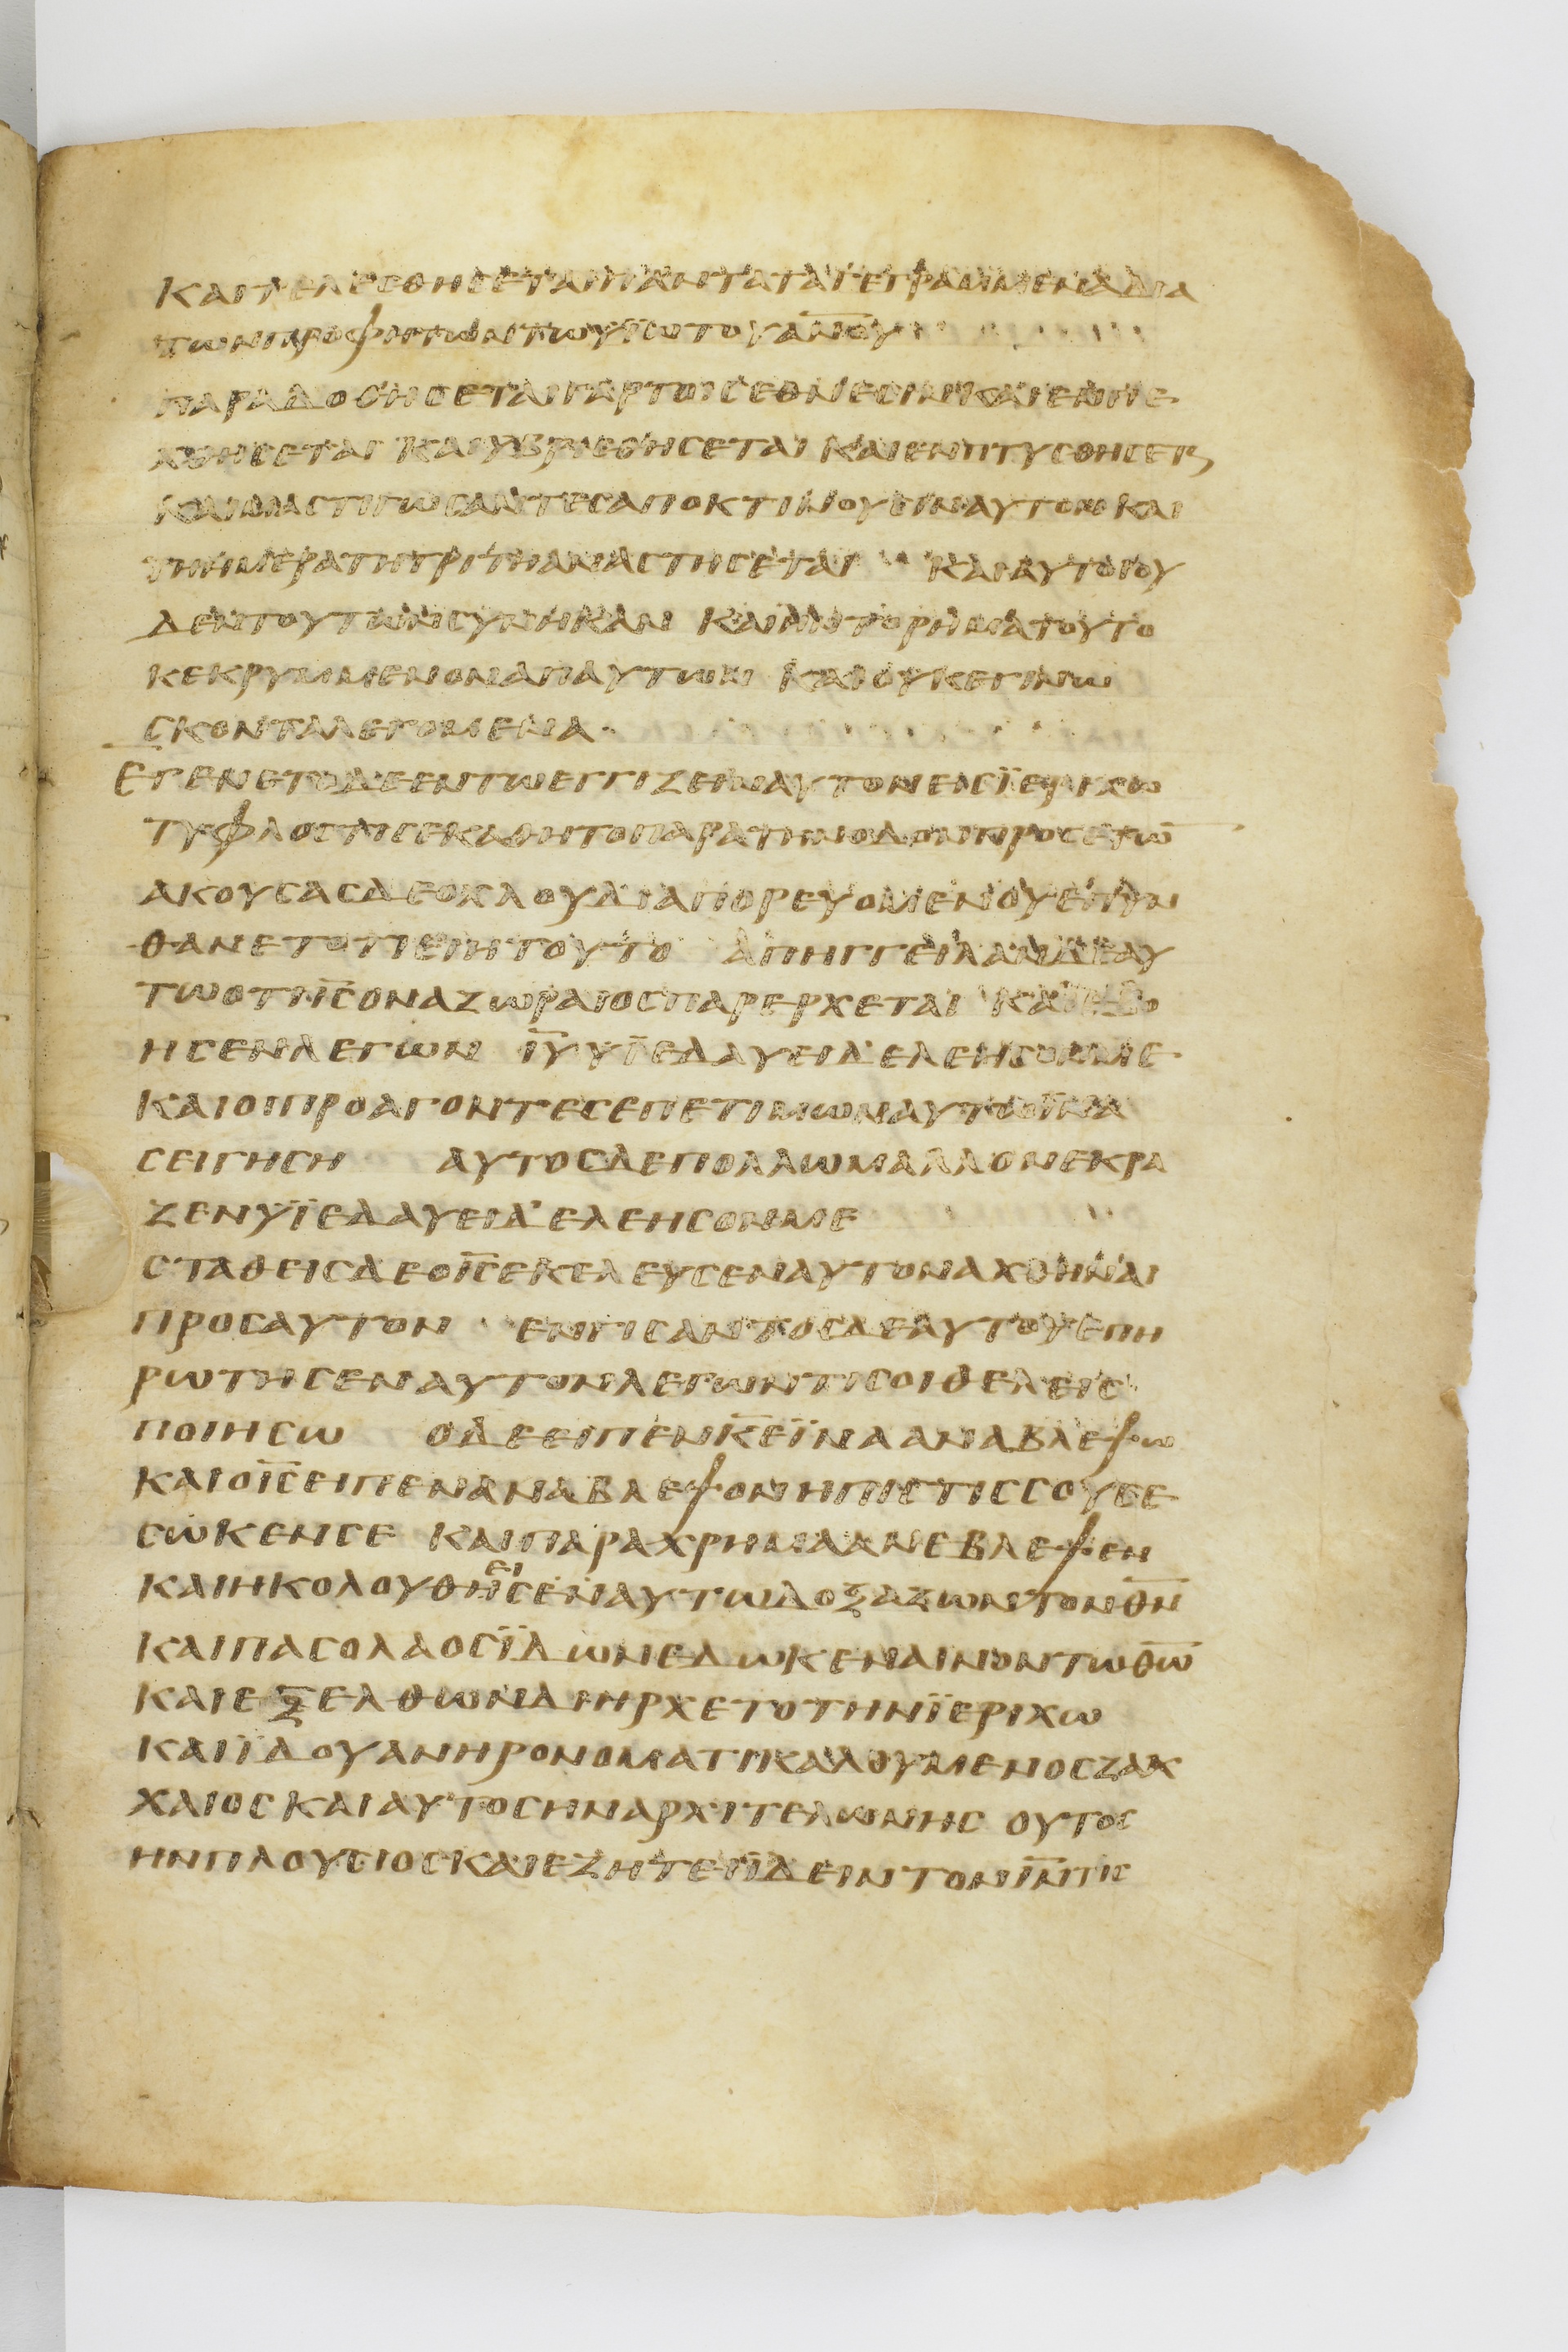 ΚΑΙΤΕΛΕΣΘΗΣΕΤΑΙΠΑΝΤΑΤΑΓΕΓΡΑΜΜΕΝΑΔΙΑ
ΤΩΝΠΡΟΦΗΤΩΝΤΩΥΙΩΤΟΥΑΝ̅Ο̅Υ̅
ΠΑΡΑΔΟΘΗΣΕΤΑΙΓΑΡΤΟΙΣΕΘΝΕΣΙΝΚΑΙΕΝΠΕ
ΧΘΗΣΕΤΑΙ ΚΑΙΥΒΡΙΣΘΗΣΕΤΑΙ ΚΑΙΕΝΠΤΥΣΘΗΣΕΤΑΙ
ΚΑΙΜΑΣΤΙΓΩΣΑΝΤΕΣΑΠΟΚΤΙΝΟΥΣΙΝΑΥΤΟΝΚΑΙ
ΤΗΗΜΕΡΑΤΗΤΡΙΤΗΑΝΑΣΤΗΣΕΤΑΙ ΚΑΙΑΥΤΟΙΟΥ
ΔΕΝΤΟΥΤΩΝΣΥΝΗΚΑΝ ΚΑΙΗΝΤΟΡΗΜΑΤΟΥΤΟ
ΚΕΚΡΥΜΜΕΝΟΝΑΠΑΥΤΩΝ ΚΑΙΟΥΚΕΓΙΝΩ
ΣΚΟΝΤΑΛΕΓΟΜΕΝΑ
ΕΓΕΝΕΤΟΔΕΕΝΤΩΕΓΓΙΖΕΙΝΑΥΤΟΝΕΙΣΪΕΡΙΧΩ
ΤΥΦΛΟΣΤΙΣΕΚΑΘΗΤΟΠΑΡΑΤΗΝΟΔΟΝΠΡΟΣΕΤΩ̅
ΑΚΟΥΣΑΣΔΕΟΧΛΟΥΔΙΑΠΟΡΕΥΟΜΕΝΟΥΕΠΥΝ
ΘΑΝΕΤΟΤΙΕΙΗΤΟΥΤΟ ΑΠΗΓΓΕΙΛΑΝΔΕΑΥ
ΤΩΟΤΙΙ̅Σ̅ΟΝΑΖΩΡΑΙΟΣΠΑΡΕΡΧΕΤΑΙ ΚΑΙΕΒΟ
ΗΣΕΝΛΕΓΩΝ Ι̅Υ̅ΥΪΕΔΑΥΕΙΔ'ΕΛΕΗΣΟΝΜΕ
ΚΑΙΟΙΠΡΟΑΓΟΝΤΕΣΕΠΕΤΙΜΩΝΑΥΤΩΪΝΑ
ΣΕΙΓΗΣΗ ΑΥΤΟΣΔΕΠΟΛΛΩΜΑΛΛΟΝΕΚΡΑ
ΖΕΝΥΪΕΔΑΥΕΙΔ'ΕΛΕΗΣΟΝΜΕ
ΣΤΑΘΕΙΣΔΕΟΙ̅Σ̅ΕΚΕΛΕΥΣΕΝΑΥΤΟΝΑΧΘΗΝΑΙ
ΠΡΟΣΑΥΤΟΝ ΕΝΓΙΣΑΝΤΟΣΔΕΑΥΤΟΥΕΠΗ
ΡΩΤΗΣΕΝΑΥΤΟΝΛΕΓΩΝΤΙΣΟΙΘΕΛΕΙΣ
ΠΟΙΗΣΩ ΟΔΕΕΙΠΕΝΚ̅Ε̅ΪΝΑΑΝΑΒΛΕΨΩ
ΚΑΙΟΙ̅Σ̅ΕΙΠΕΝΑΝΑΒΛΕΨΟΝΗΠΙΣΤΙΣΣΟΥΣΕ
ΣΩΚΕΝΣΕ ΚΑΙΠΑΡΑΧΡΗΜΑΑΝΕΒΛΕΨΕΝ
ΚΑΙΗΚΟΛΟΥΘΗΣΕΝΑΥΤΩΔΟΞΑΖΩΝΤΟΝΘ̅Ν̅
ΚΑΙΠΑΣΟΛΑΟΣΪΔΩΝΕΔΩΚΕΝΑΙΝΟΝΤΩΘ̅Ω̅
ΚΑΙΕΞΕΛΘΩΝΔΙΗΡΧΕΤΟΤΗΝΪΕΡΙΧΩ
ΚΑΙΪΔΟΥΑΝΗΡΟΝΟΜΑΤΙΚΑΛΟΥΜΕΝΟΣΖΑΚ
ΧΑΙΟΣΚΑΙΑΥΤΟΣΗΝΑΡΧΙΤΕΛΩΝΗΣ ΟΥΤΟΣ
ΗΝΠΛΟΥΣΙΟΣΚΑΙΕΖΗΤΕΙΪΔΕΙΝΤΟΝΙ̅Ν̅ΤΙΣ